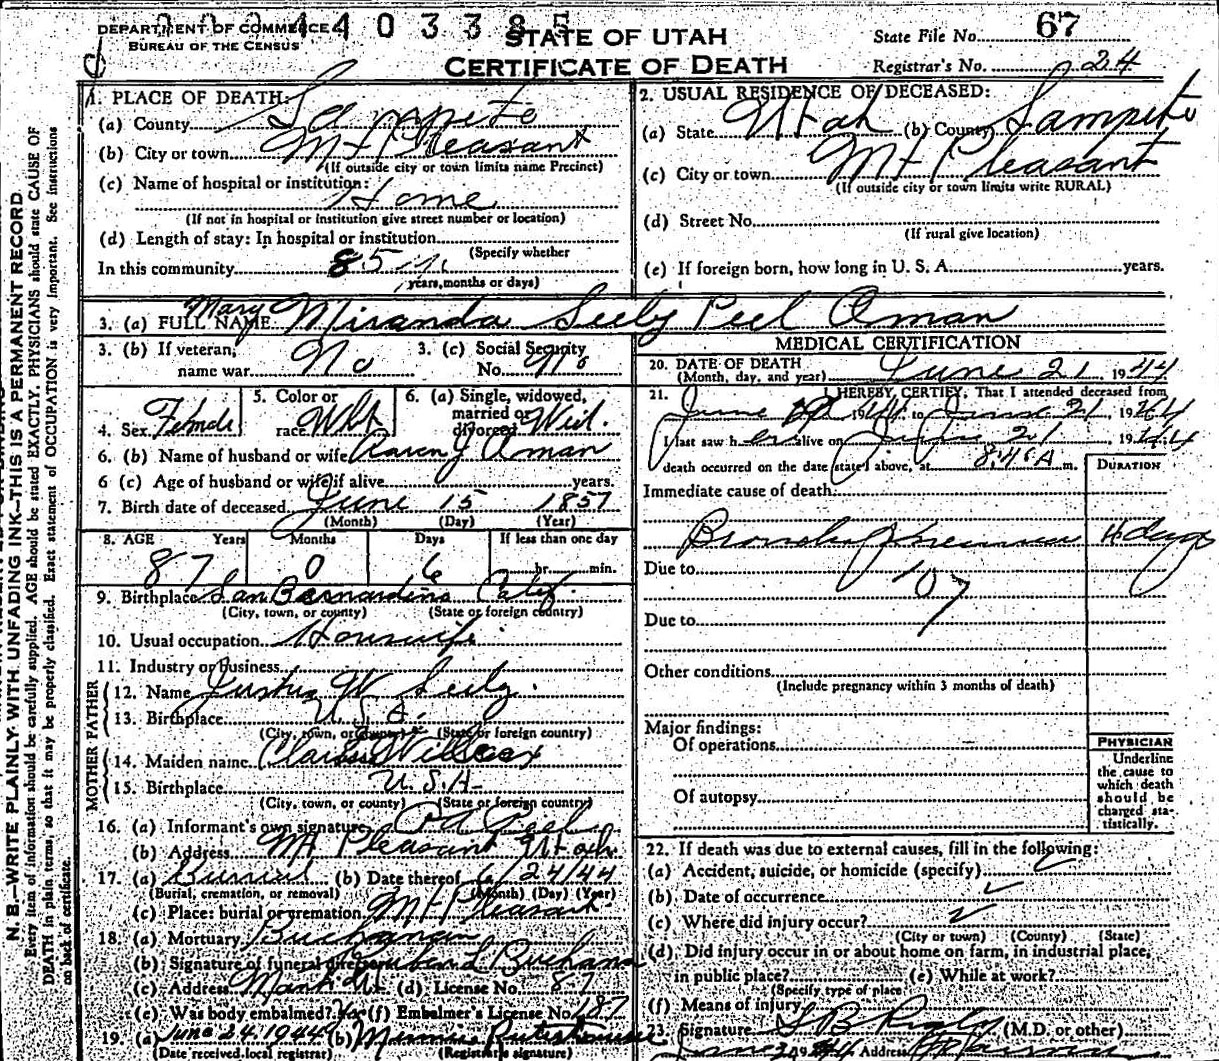 DEPARTMENT OF COMMERCE
BUREAU OF THE CENSUS
4 4 0 3 3 8 5
STATE OF UTAH
CERTIFICATE OF DEATH
State File No. 67
Registrar's No. 24
1. PLACE OF DEATH:
(a) County Sanpete
(b) City or town Mt Pleasant
(If outside city or town limits name Precinct)
(c) Name of hospital or institution:
Home
(If not in hospital or institution give street number or location)
(d) Length of stay: In hospital or institution
(Specify whether
In this community 85 yr.
years, months or days)
2. USUAL RESIDENCE OF DECEASED:
(a) State Utah (b) County Sanpete
(c) City or town Mt Pleasant
(If outside city or town limits write RURAL)
(d) Street No.
(If rural give location)
(e) If foreign born, how long in U. S. A. years.
3. (a) FULL NAME Mary Miranda Seely Peel Oman
3. (b) If veteran, name war No
3. (c) Social Security No. No
4. Sex Female
5. Color or race Wht
6. (a) Single, widowed, married or divorced Wid.
6. (b) Name of husband or wife Aaren J Oman
6 (c) Age of husband or wife if alive years.
7. Birth date of deceased June 15 1857
(Month) (Day) (Year)
8. AGE Years Months Days If less than one day
87 0 6 hr. min.
9. Birthplace San Bernardino Calif.
(City, town, or county) (State or foreign country)
10. Usual occupation Housewife
11. Industry or business
FATHER
12. Name Justus W Seely.
13. Birthplace U.S.A.
(City, town, or county) (State or foreign country)
MOTHER
14. Maiden name Clarissa Willcox
15. Birthplace U.S.A-
(City, town, or county) (State or foreign country)
16. (a) Informant's own signature P A Peel
(b) Address Mt Pleasant Utah
17. (a) Burial (b) Date thereof 6/24/44
(Burial, cremation, or removal) (Month) (Day) (Year)
(c) Place: burial or cremation Mt Pleasant
18. (a) Mortuary Buchanan
(b) Signature of funeral director Reuben L Buchanan
(c) Address Manti Ut. (d) License No. 8-7
(e) Was body embalmed? Yes (f) Embalmer's License No. 187
19. (a) June 24, 1944 (b) Minnie
(Date received local registrar) (Registrar's signature)
MEDICAL CERTIFICATION
20. DATE OF DEATH
(Month, day, and year) June 21, 1944
21. I HEREBY CERTIFY, That I attended deceased from
June 1944 to June 21, 1944
I last saw her alive on June 21, 1944
death occurred on the date stated above, at 8:46 A m.
DURATION
Immediate cause of death:
Broncho Pneumonia 4 days
Due to
107
Due to
Other conditions
(Include pregnancy within 3 months of death)
Major findings:
Of operations
Of autopsy
PHYSICIAN
Underline
the cause to
which death
should be
charged sta-
tistically.
22. If death was due to external causes, fill in the following:
(a) Accident, suicide, or homicide (specify)
(b) Date of occurrence
(c) Where did injury occur?
(City or town) (County) (State)
(d) Did injury occur in or about home on farm, in industrial place,
in public place? (e) While at work?
(Specify type of place
(f) Means of injury
23. Signature (M.D. or other)
Address
N. B.—WRITE PLAINLY WITH UNFADING INK—THIS IS A PERMANENT RECORD
Every item of information should be carefully supplied. AGE should be stated EXACTLY. PHYSICIANS should state CAUSE OF
DEATH in plain terms, so that it may be properly classified. Exact statement of OCCUPATION is very important. See instructions
on back of certificate.